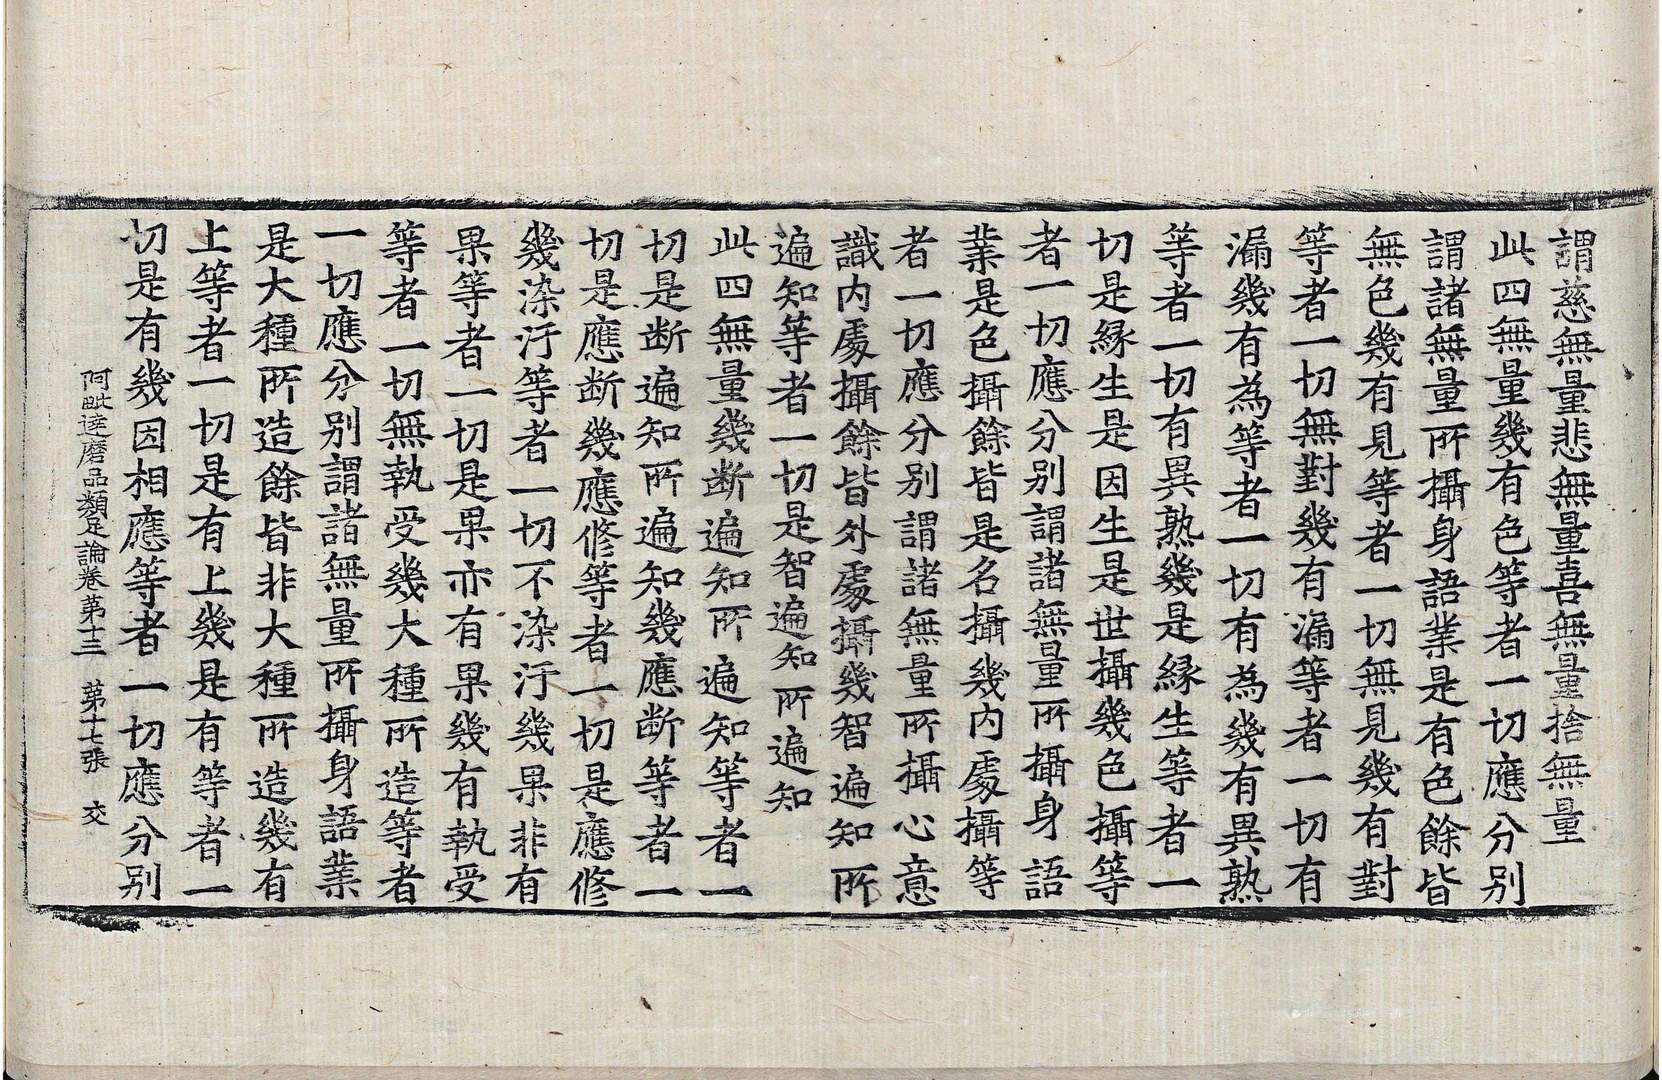 謂慈無量悲無量喜無量捨無量
此四無量幾有色等者一切應分別
謂諸無量所攝身語業是有色餘皆
無色幾有見等者一切無見幾有對
等者一切無對幾有漏等者一切有
漏幾有為等者一切有為幾有異熟
等者一切有異熟幾是緣生等者一
切是緣生是因生是世攝幾色攝等
者一切應分別謂諸無量所攝身語
業是色攝餘皆是名攝幾內處攝等
者一切應分別謂諸無量所攝心意
識內處攝餘皆外處攝幾智遍知所
遍知等者一切是智遍知所遍知
此四無量幾断遍知所遍知等者一
切是断遍知所遍知幾應断等者一
切是應断幾應修等者一切是應修
幾染汙等者一切不染汙幾果非有
果等者一切是果亦有果幾有執受
等者一切無執受幾大種所造等者
一切應分別謂諸無量所攝身語業
是大種所造餘皆非大種所造幾有
上等者一切是有上幾是有等者一
切是有幾因相應等者一切應分別
阿毗達磨品類足論卷第十三 第十七張 交